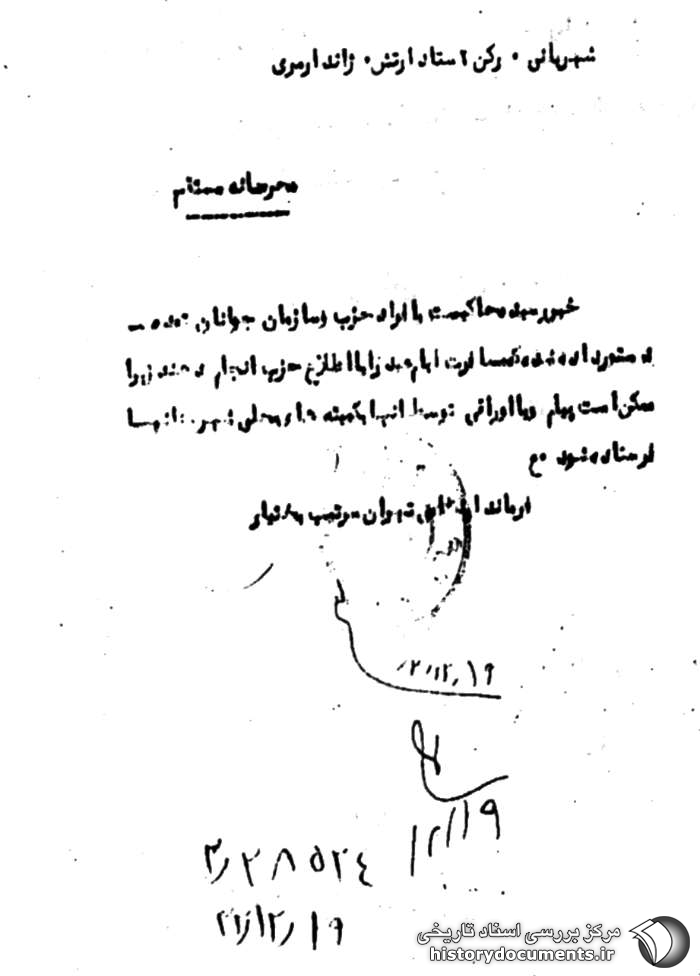 شهربانی ۰ رکن ۲ ستاد ارتش ۰ ژاندارمری
محرمانه مستقیم
خبر رسیده حاکیست بافراد حزب و سازمان جوانان توده
دستور داده شده مسافرت ایام عید را با اطلاع حزب انجام دهند زیرا
ممکن است پیام و یا اوراقی توسط آنها بکمیته های محلی شهرستانها
فرستاده شود
فرماندار نظامی تهران سرتیپ بختیار
۱۲/۱۹
۱۲/۱۹
۲۸۵۲۴
۱۲/۱۹
مرکز بررسی اسناد تاریخی
historydocuments.ir